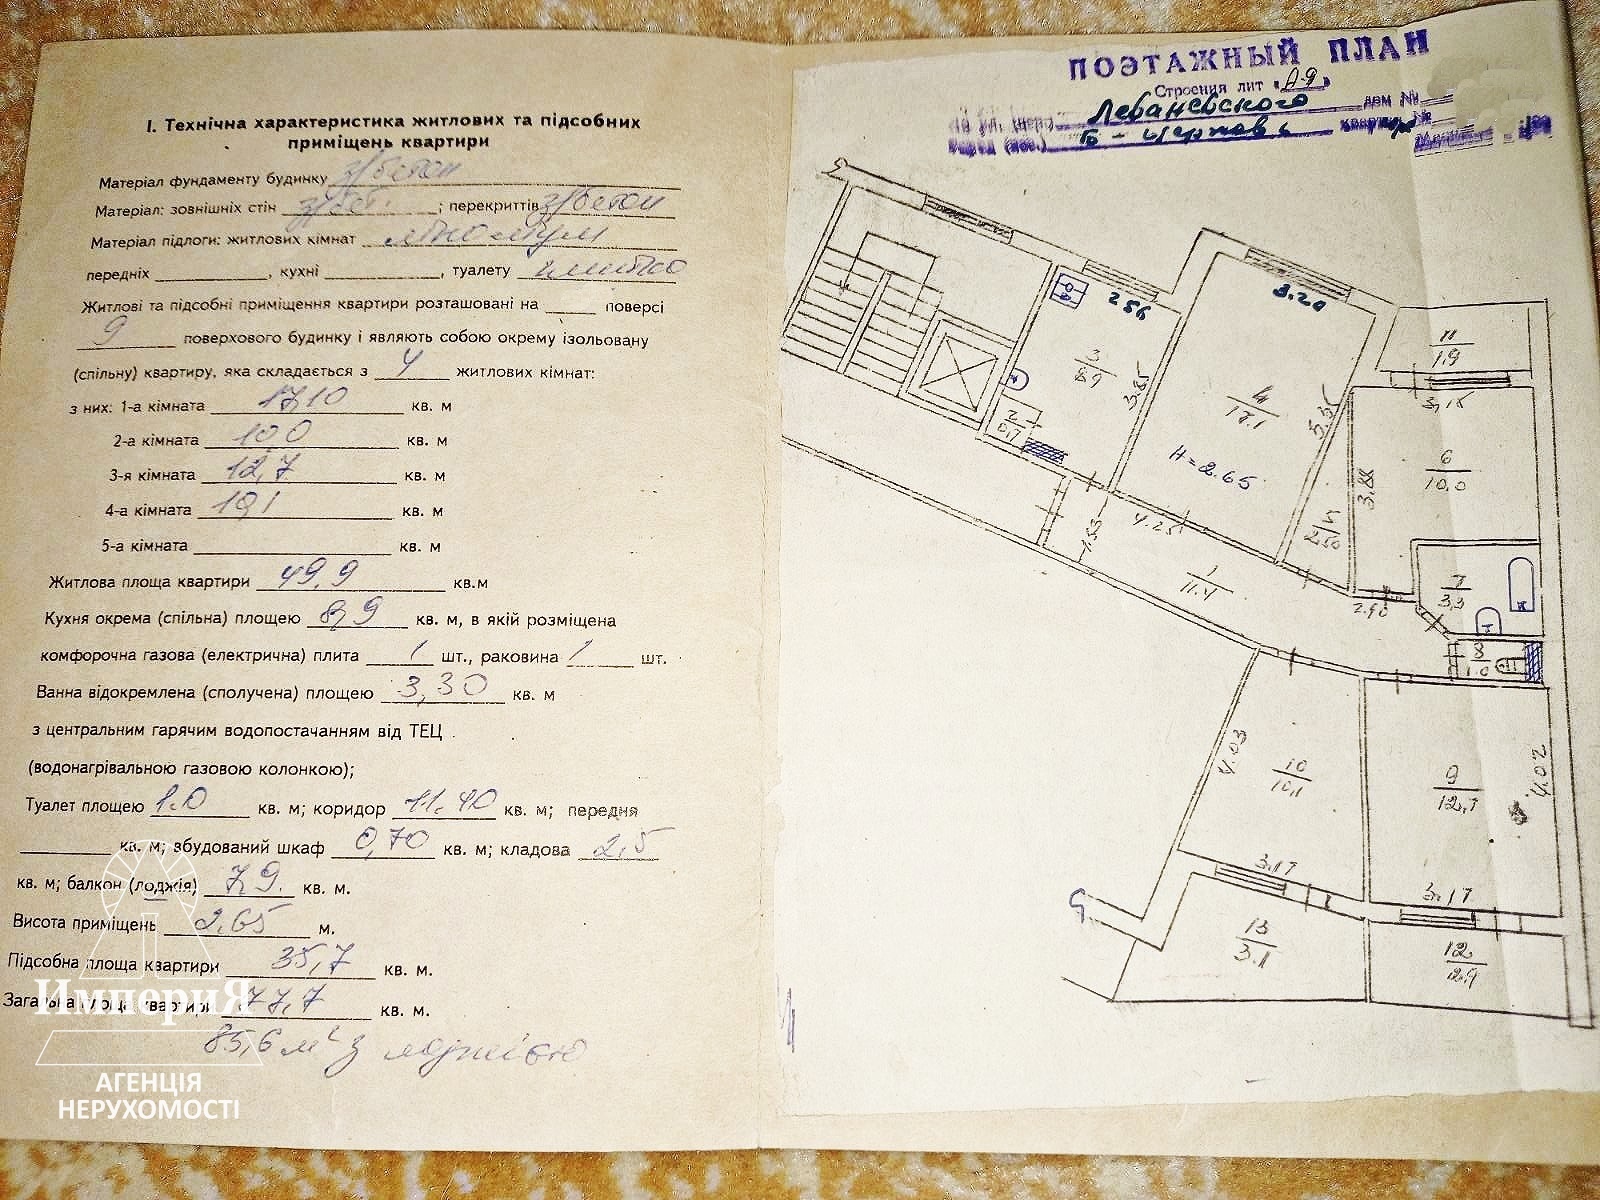 I. Технічна характеристика житлових та підсобних
приміщень квартири
Матеріал фундаменту будинку з/бетон
Матеріал: зовнішніх стін з/бет. ; перекриттів з/бетон
Матеріал підлоги: житлових кімнат ліноліум
передніх , кухні , туалету плитка
Житлові та підсобні приміщення квартири розташовані на поверсі
9 поверхового будинку і являють собою окрему ізольовану
(спільну) квартиру, яка складається з 4 житлових кімнат:
з них: 1-а кімната 17,10 кв. м
2-а кімната 10,0 кв. м
3-я кімната 12,7 кв. м
4-а кімната 10,1 кв. м
5-а кімната кв. м
Житлова площа квартири 49,9 кв.м
Кухня окрема (спільна) площею 8,9 кв. м, в якій розміщена
комфорочна газова (електрична) плита 1 шт., раковина 1 шт.
Ванна відокремлена (сполучена) площею 3,30 кв. м
з центральним гарячим водопостачанням від ТЕЦ
(водонагрівальною газовою колонкою);
Туалет площею 1.0 кв. м; коридор 11.40 кв. м; передня
кв. м; збудований шкаф 0,70 кв. м; кладова 2,5
кв. м; балкон (лоджія) 7,9. кв. м.
Висота приміщень 2.65 м.
Підсобна площа квартири 35,7 кв. м.
Загальна площа квартири 77,7 кв. м.
85,6 м² з лоджією
ИмпериЯ
АГЕНЦІЯ
НЕРУХОМОСТІ
ПОЭТАЖНЫЙ ПЛАН
Строения лит "А-9"
Леваневского дом №
квартира №
2.56
3.20
11
1.9
3
8.9
3.85
4
17.1
5.35
3,15
2
0,7
H=2.65
6
10.0
3.88
5
2.50
1.53
4.25
1
11.4
2.90
7
3,3
8
1.0
4.03
10
10,1
9
12,7
4.02
3.17
3.17
13
3.1
12
2.9